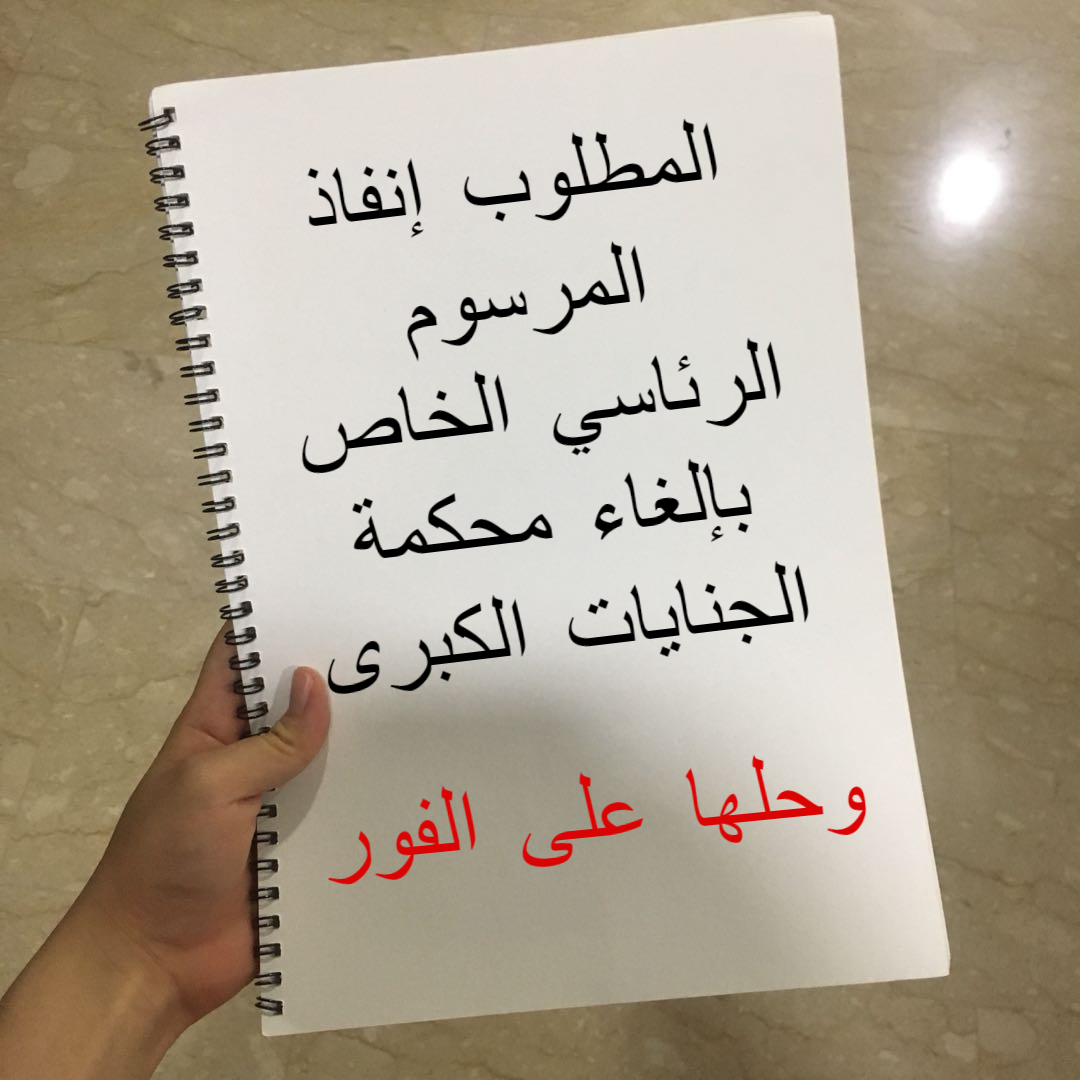 المطلوب إنفاذ
المرسوم
الرئاسي الخاص
بإلغاء محكمة
الجنايات الكبرى
وحلها على الفور